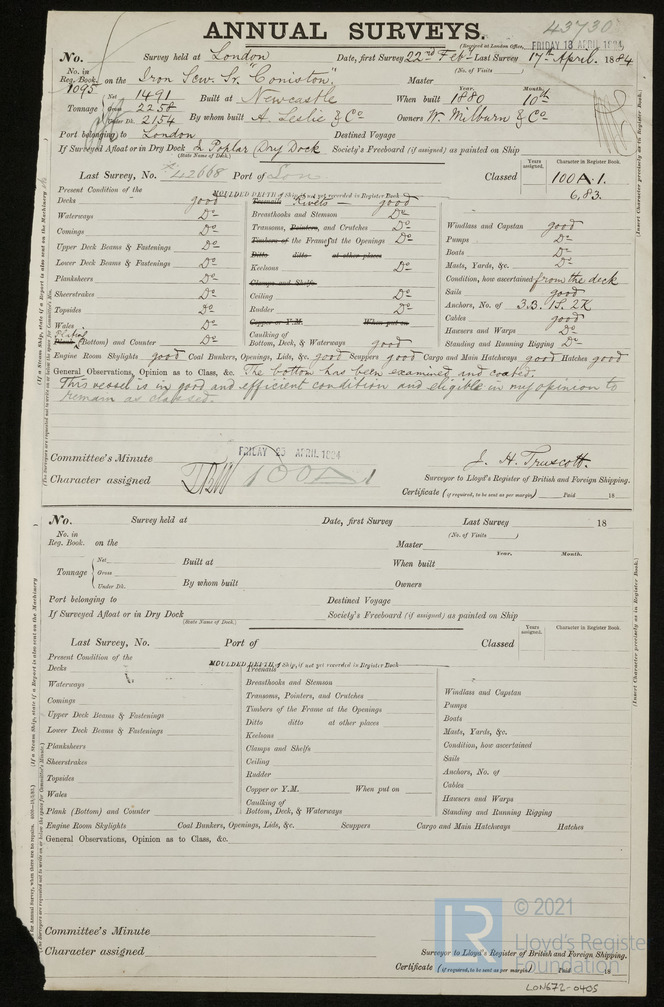 43730
ANNUAL SURVEYS.
(Received at London Office, FRIDAY 18 APRIL 1884
No. Survey held at London Date, first Survey 22nd Feb. Last Survey 17th April. 1884
(No. of Visits )
No. in Reg. Book. 1095 on the Iron Scw. Sr. "Coniston" Master
Tonnage Net 1491 Gross 2258 Under Dk. 2154
Built at Newcastle When built Year. 1880 Month. 10th
By whom built A. Leslie & Co Owners W. Milburn & Co
Port belonging to London Destined Voyage
If Surveyed Afloat or in Dry Dock In Poplar Dry Dock Society's Freeboard (if assigned) as painted on Ship
(State Name of Dock.)
Last Survey, No. *42668 Port of Lon Classed Years assigned. Character in Register Book. 100A.1.
6,83.
Present Condition of the
MOULDED DEPTH of Ship, if not yet recorded in Register Book
Decks good
Waterways Do
Comings Do
Upper Deck Beams & Fastenings Do
Lower Deck Beams & Fastenings Do
Planksheers Do
Sheerstrakes Do
Topsides Do
Wales Do
Plank Plating (Bottom) and Counter Do
Treenails Rivets good
Breasthooks and Stemson Do
Transoms, Pointers, and Crutches Do
Timbers of the Frames at the Openings Do
Ditto ditto at other places
Keelsons Do
Clamps and Shelfs
Ceiling Do
Rudder Do
Copper or Y.M. When put on
Caulking of Bottom, Deck, & Waterways good
Windlass and Capstan good
Pumps Do
Boats Do
Masts, Yards, &c. Do
Condition, how ascertained from the deck
Sails good
Anchors, No. of 3.B. 1S. 2K
Cables good
Hawsers and Warps Do
Standing and Running Rigging Do
Engine Room Skylights good Coal Bunkers, Openings, Lids, &c. good Scuppers good Cargo and Main Hatchways good Hatches good
General Observations, Opinion as to Class, &c. The bottom has been examined and coated.
This vessel is in good and efficient condition and eligible in my opinion to
remain as classed.
Committee's Minute FRIDAY 25 APRIL 1884
J. H. Truscott.
Character assigned 100A1
Surveyor to Lloyd's Register of British and Foreign Shipping.
Certificate (if required, to be sent as per margin) Paid 18
No. Survey held at Date, first Survey Last Survey 18
(No. of Visits )
No. in Reg. Book. on the Master
Year. Month.
Tonnage Net Gross Under Dk.
Built at When built
By whom built Owners
Port belonging to Destined Voyage
If Surveyed Afloat or in Dry Dock Society's Freeboard (if assigned) as painted on Ship
(State Name of Dock.)
Last Survey, No. Port of Classed Years assigned. Character in Register Book.
Present Condition of the
MOULDED DEPTH of Ship, if not yet recorded in Register Book
Decks
Waterways
Comings
Upper Deck Beams & Fastenings
Lower Deck Beams & Fastenings
Planksheers
Sheerstrakes
Topsides
Wales
Plank (Bottom) and Counter
Treenails
Breasthooks and Stemson
Transoms, Pointers, and Crutches
Timbers of the Frame at the Openings
Ditto ditto at other places
Keelsons
Clamps and Shelfs
Ceiling
Rudder
Copper or Y.M. When put on
Caulking of Bottom, Deck, & Waterways
Windlass and Capstan
Pumps
Boats
Masts, Yards, &c.
Condition, how ascertained
Sails
Anchors, No. of
Cables
Hawsers and Warps
Standing and Running Rigging
Engine Room Skylights Coal Bunkers, Openings, Lids, &c. Scuppers Cargo and Main Hatchways Hatches
General Observations, Opinion as to Class, &c.
Committee's Minute
Character assigned
Surveyor to Lloyd's Register of British and Foreign Shipping.
Certificate (if required, to be sent as per margin) Paid 18
(Insert Character precisely as in Register Book.)
(Insert Character precisely as in Register Book.)
LR © 2021
Lloyd's Register
Foundation
LON672-0405